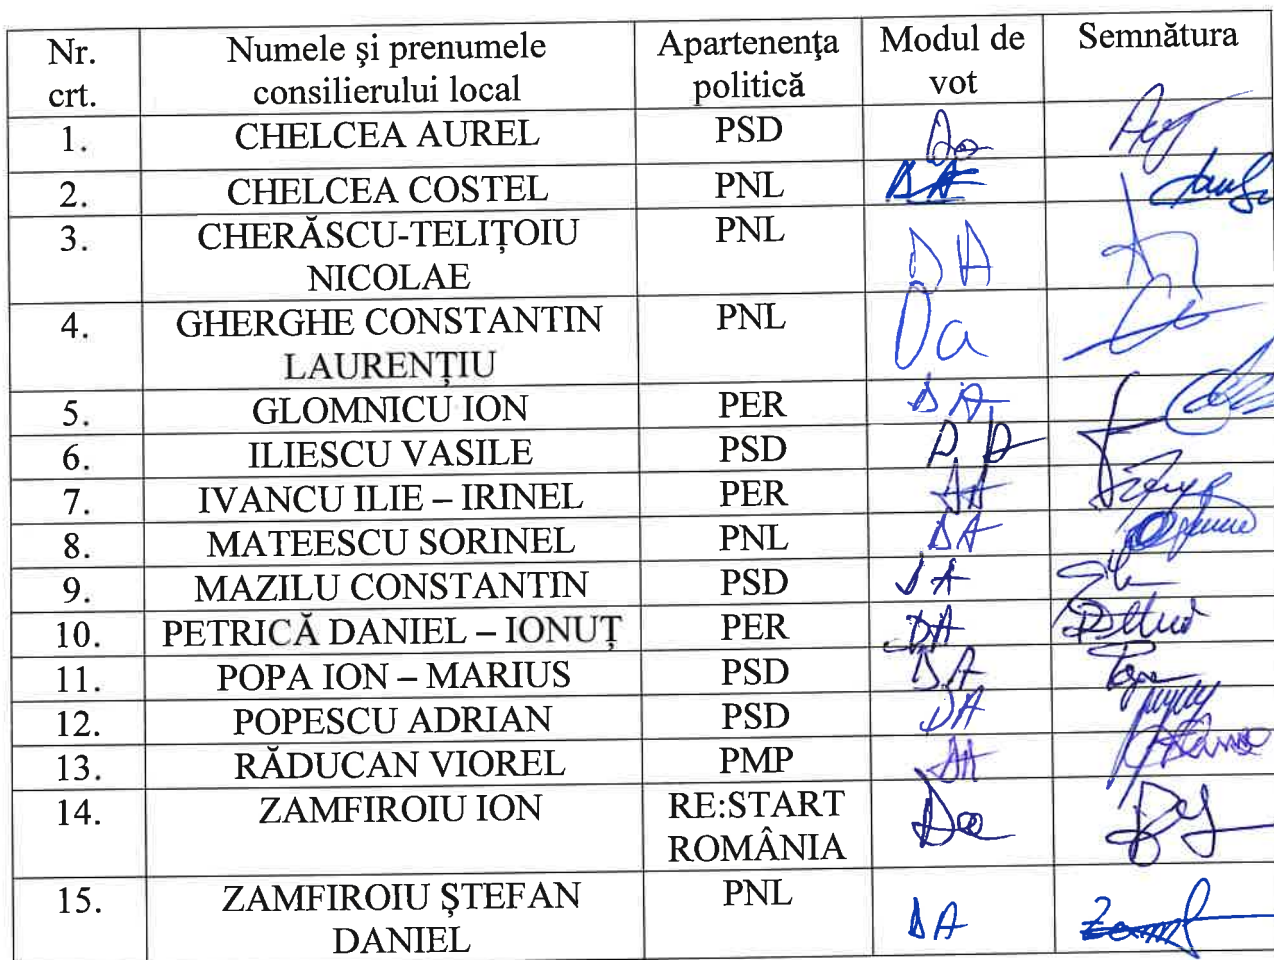 Nr. crt. Numele şi prenumele consilierului local Apartenenţa politică Modul de vot Semnătura
1. CHELCEA AUREL PSD Da
2. CHELCEA COSTEL PNL DA
3. CHERĂSCU-TELIȚOIU NICOLAE PNL DA
4. GHERGHE CONSTANTIN LAURENȚIU PNL Da
5. GLOMNICU ION PER DA
6. ILIESCU VASILE PSD DA
7. IVANCU ILIE – IRINEL PER DA
8. MATEESCU SORINEL PNL DA
9. MAZILU CONSTANTIN PSD DA
10. PETRICĂ DANIEL – IONUȚ PER DA
11. POPA ION – MARIUS PSD DA
12. POPESCU ADRIAN PSD DA
13. RĂDUCAN VIOREL PMP DA
14. ZAMFIROIU ION RE:START ROMÂNIA Da
15. ZAMFIROIU ŞTEFAN DANIEL PNL DA